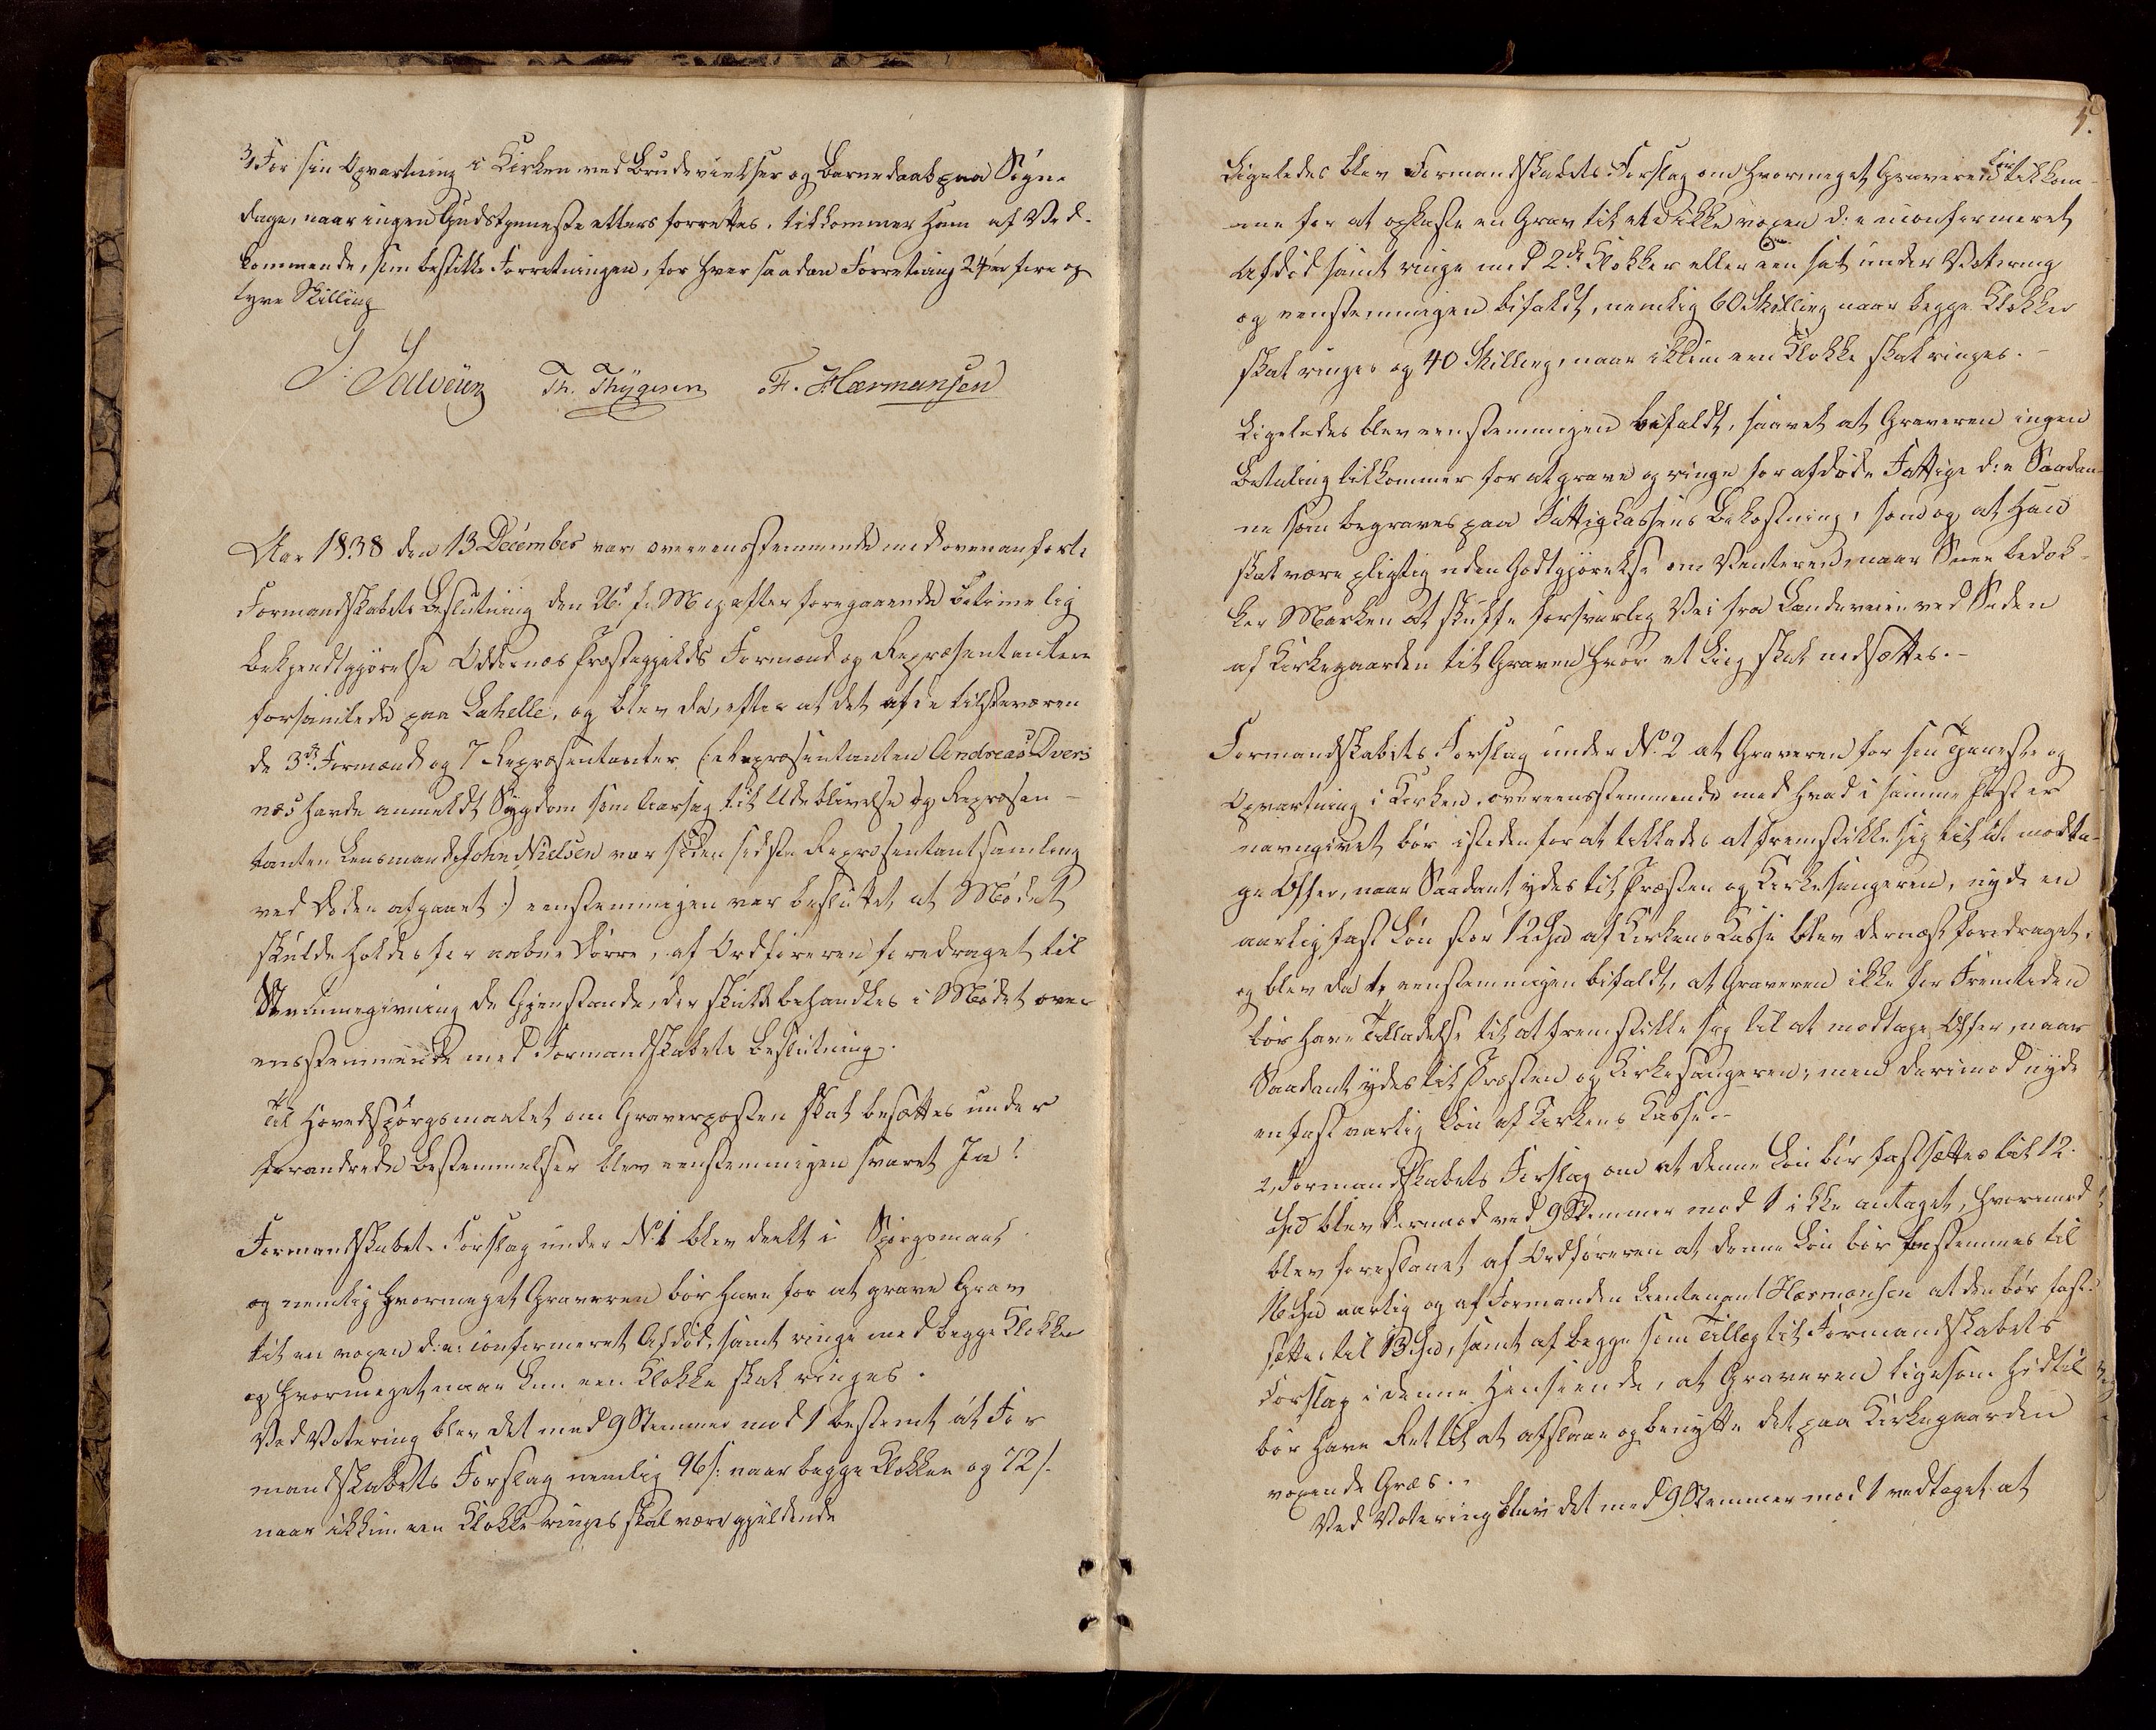 3, For sin Opvartning i Kirken ved Brudevielser og Barnedaab paa Søgne
dage, naar ingen Gudstjeneste ellers forrettes, tilkommer Ham af Ved-
kommende, som bestille Forretningen, for hver saadan Forretning 24 er fire og
tyve Skilling
S. Salvesen Th. Thygesen F. Hærmansen
Aar 1838 den 13 December var overeensstemmende med ovenanførte
Formandskabets Beslutning den 26de f. M. og efter foregaaende betimelig
Bekjendtgjørelse Oddernæs Præstegjelds Formænd og Repræsentantere
forsamlede paa Lahelle, og blev da, efter at det af de tilstæværen
de 3de Formænd og 7 Repræsentanter (: Repræsentanten Andreas Dvers
næs havde anmeldt Sygdom som Aarsag til Udeblivelse og Repræsen-
tanten Lensmand John Nielsen var siden sidste Repræsentantsamling
ved Døden afgaaet :) eenstemmigen var besluttet, at Mødet
skulde holdes for aabne Dørre, af Ordføreren foredraget til
Stemmegivning de Gjenstande, der skulde behandles i Mødet over
ensstemmende med Formandskabets Beslutning.
Til Hovedspørgsmaalet om Graverposten skal besættes under
forandrede Bestemmelser blev eenstemmigen svaret Ja!
Formandskabets Forslag under No 1 blev deelt i Spørgsmaal
og nemlig hvormeget Graveren bør have for at grave Grav
til en voxen d: e: confirmeret Afdød, samt ringe med begge Klokker
og hvormeget, naar kun een Klokke skal ringes.
Ved Votering blev det med 9 Stemmer mod 1 bestemt at For
mandskabets Forslag nemlig 96 s. naar begge Klokker og 72 s.
naar ikkun een Klokke ringes skal være gjeldende
5.
Ligeledes blev Formandskabets Forslag om hvormeget Graveren bør tilkom-
me for at opkaste en Grav til et ikke voxen d: e uconfirmeret
Afdød samt ringe med 2de Klokker eller een sat under Votering
og eenstemmigen bifaldt, nemlig 60 Skilling naar begge Klokker
skal ringes og 40 Skilling, naar ikkun een Klokke skal ringes.-
Ligeledes blev eenstemmigen bifaldt, saavel at Graveren ingen
Betaling tilkommer for at grave og ringe for afdøde Fattige d: e Saadan-
ne som begraves paa Fattigkassens Bekostning, som og at Han
skal være pligtig uden Godtgjørelse om Vinteren, naar Snee bedæk-
ker Marken at skuffe forsvarlig Vei fra Landeveien ved Siden
af Kirkegaarden til Graven hvor et Liig skal nedsættes.-
Formandskabets Forslag under No 2 at Graveren for sin Tjeneste og
Opvartning i Kirken, overeensstemmende med hvad i samme Post er
navngivet bør isteden for at tillades at fremstille sig til at modta-
ge Offer, naar Saadant ydes til Præsten og Kirkesangeren, nyde en
aarlig fast Løn stor 12 Spd af Kirkens Kasse blev dernæst foredraget,
og blev da eenstemmigen bifaldt, at Graveren ikke for Fremtiden
bør have Tilladelse til at fremstille sig til at modtage Offer, naar
Saadant ydes til Præsten og Kirkesangeren; men derimod nyde
en fast aarlig Løn af Kirkens Kasse.-
2, Formandskabets Forslag om at denne Løn bør fastsættes til 12
Spd blev derimod ved 9 Stemmer mod 1 ikke antaget, hvorimod
blev foreslaaet af Ordføreren at denne Løn bør bestemmes til
16 Spd aarlig og af Formanden Lieutenant Hærmansen at den bør fast-
sættes til 13 Spd, samt af begge som Tillæg til Formandskabets
Forslag i denne Henseende, at Graveren ligesom hidtil
bør have Ret til at afslaae og benytte det paa Kirkegaarden
voxende Græs.-
Ved Votering blev det med 9 Stemmer mod 1 vedtaget at